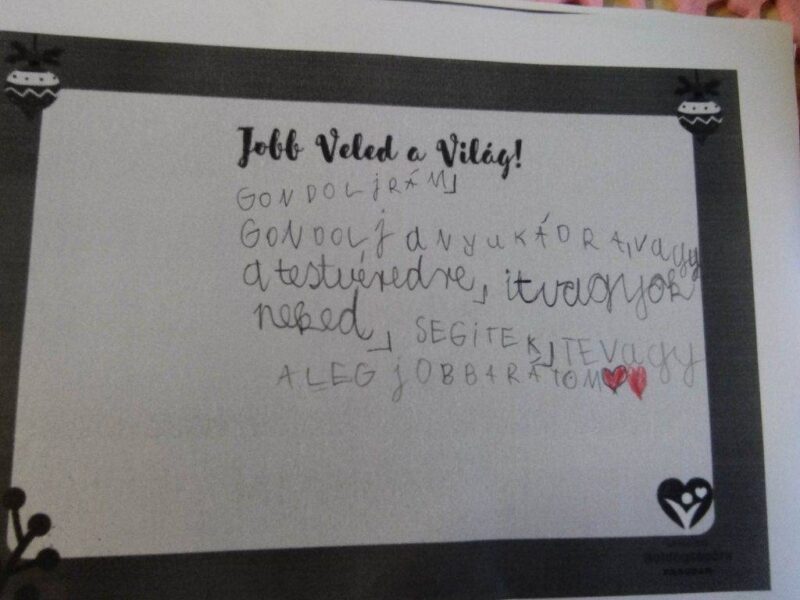 Jobb Veled a Világ!
GONDOLj RÁM,
GONDOLj anyuKÁDRA, vagy
a testvéredre, itvagyok
neked, SEGíTEK, TEVagy
ALEGjOBBBARÁTOM